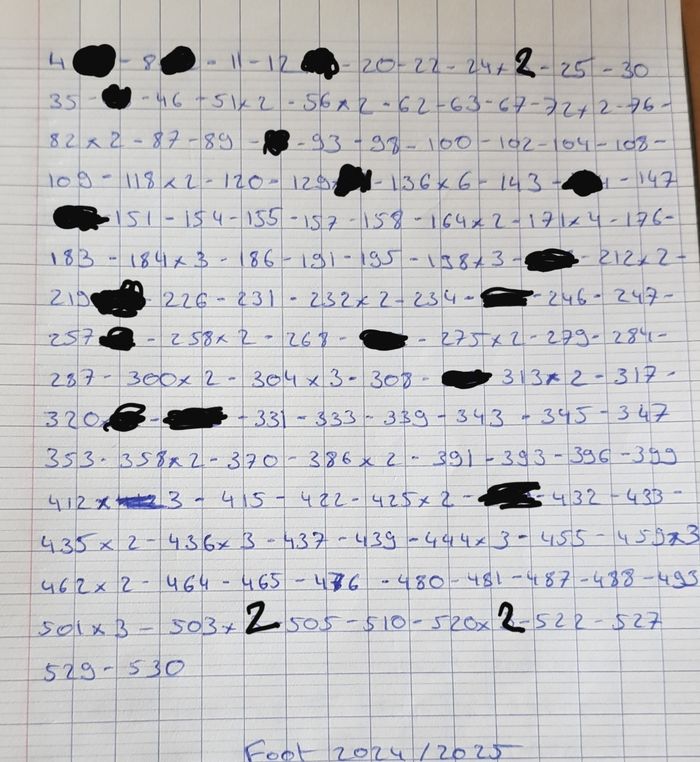 4 - 8 - 11 - 12 - 20 - 22 - 24 x 2 - 25 - 30
35 - - 46 - 51 x 2 - 56 x 2 - 62 - 63 - 67 - 72 x 2 - 76 -
82 x 2 - 87 - 89 - - 93 - 98 - 100 - 102 - 104 - 108 -
109 - 118 x 2 - 120 - 129 - 136 x 6 - 143 - - 147
151 - 154 - 155 - 157 - 158 - 164 x 2 - 171 x 4 - 176 -
183 - 184 x 3 - 186 - 191 - 195 - 198 x 3 - - 212 x 2 -
219 226 - 231 - 232 x 2 - 234 - - 246 - 247 -
257 - 258 x 2 - 268 - - 275 x 2 - 279 - 284 -
287 - 300 x 2 - 304 x 3 - 308 - 313 x 2 - 317 -
320 - - 331 - 333 - 339 - 343 - 345 - 347
353 - 358 x 2 - 370 - 386 x 2 - 391 - 393 - 396 - 399
412 x 3 - 415 - 422 - 425 x 2 - - 432 - 433 -
435 x 2 - 436 x 3 - 437 - 439 - 444 x 3 - 455 - 459 x 3
462 x 2 - 464 - 465 - 476 - 480 - 481 - 487 - 488 - 493
501 x 3 - 503 x 2 505 - 510 - 520 x 2 - 522 - 527
529 - 530
Foot 2024/2025